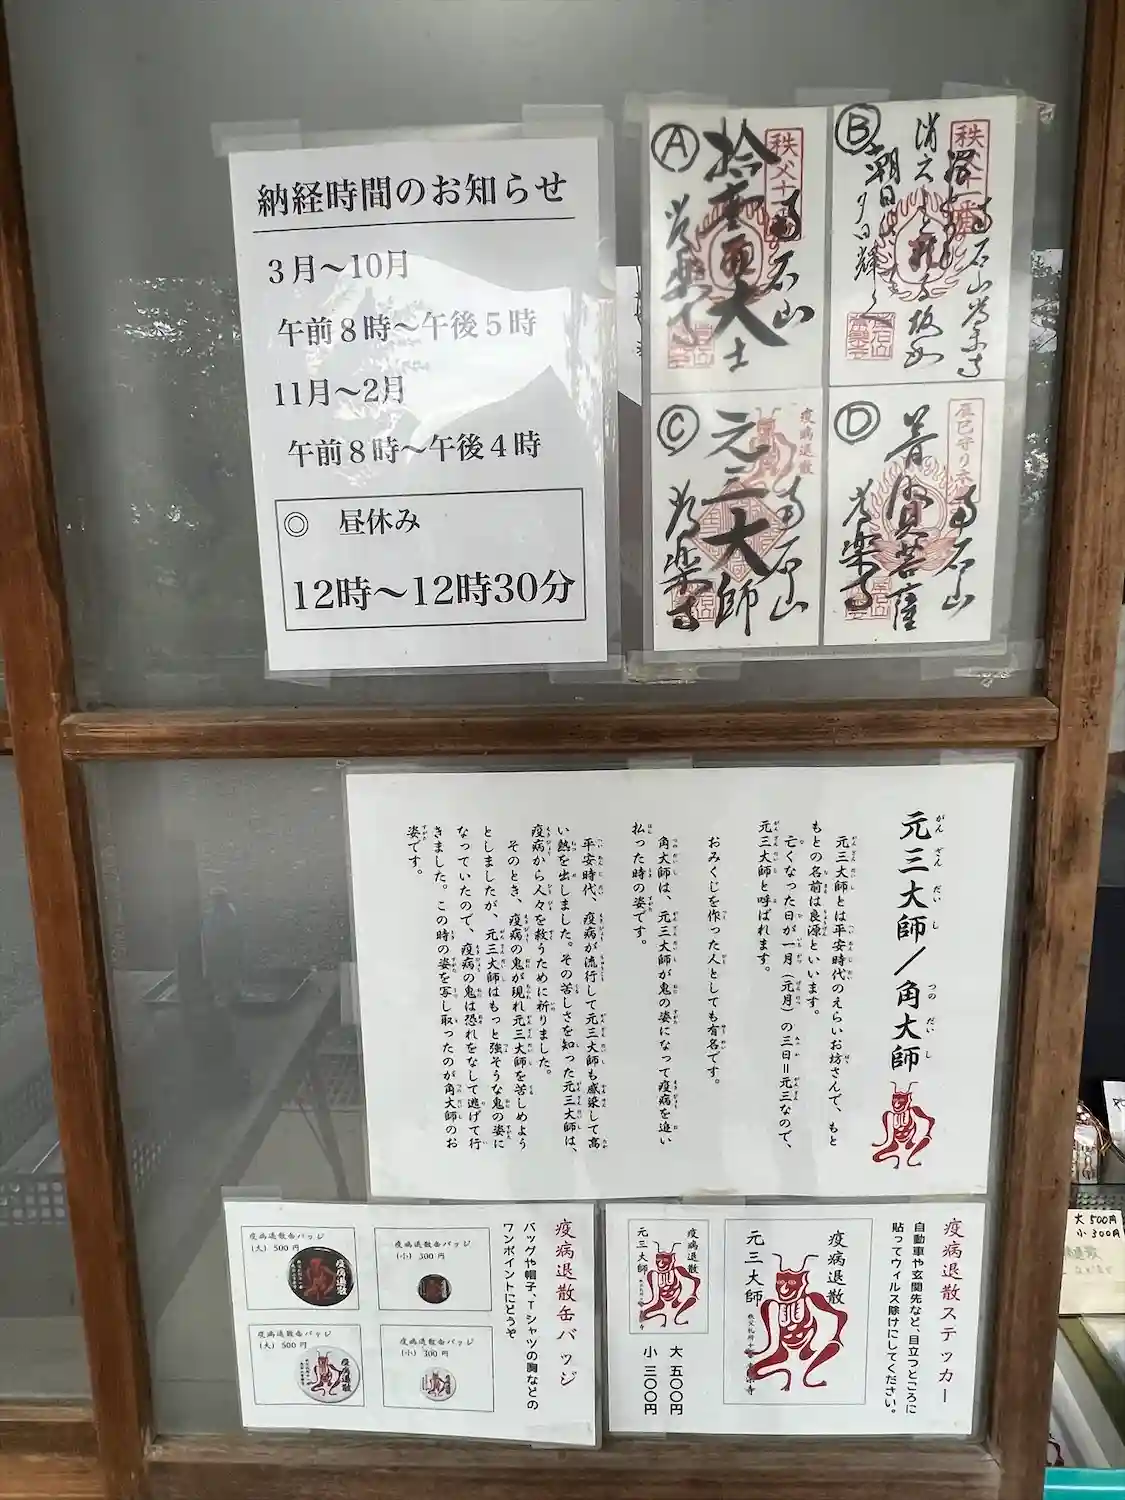 納経時間のお知らせ
3月～10月
午前8時～午後5時
11月～2月
午前8時～午後4時
◎ 昼休み
12時～12時30分
A
南石山
B
南石山
C
疫病退散
南石山
元三大師
D
辰巳守り本
南石山
普賢菩薩
元三大師／角大師
がんざんだいし
つのだいし
元三大師とは平安時代のえらいお坊さんで、もと
もとの名前は良源といいます。
亡くなった日が一月（元月）の三日＝元三なので、
元三大師と呼ばれます。
おみくじを作った人としても有名です。
角大師は、元三大師が鬼の姿になって疫病を追い
払った時の姿です。
平安時代、疫病が流行して元三大師も感染して高
い熱を出しました。その苦しさを知った元三大師は、
疫病から人々を救うために祈りました。
そのとき、疫病の鬼が現れ元三大師を苦しめよう
としましたが、元三大師はもっと強そうな鬼の姿に
なっていたので、疫病の鬼は恐れをなして逃げて行
きました。この時の姿を写し取ったのが角大師のお
姿です。
疫病退散缶バッジ
バッグや帽子、Tシャツの胸などの
ワンポイントにどうぞ
疫病退散缶バッジ
(大) 500円
疫病退散
疫病退散缶バッジ
(小) 300円
疫病退散缶バッジ
(大) 500円
疫病退散
疫病退散缶バッジ
(小) 300円
疫病退散ステッカー
自動車や玄関先など、目立つところに
貼ってウィルス除けにしてください。
疫病退散
元三大師
疫病退散
元三大師
大 五〇〇円
小 三〇〇円
大 500円
小 300円